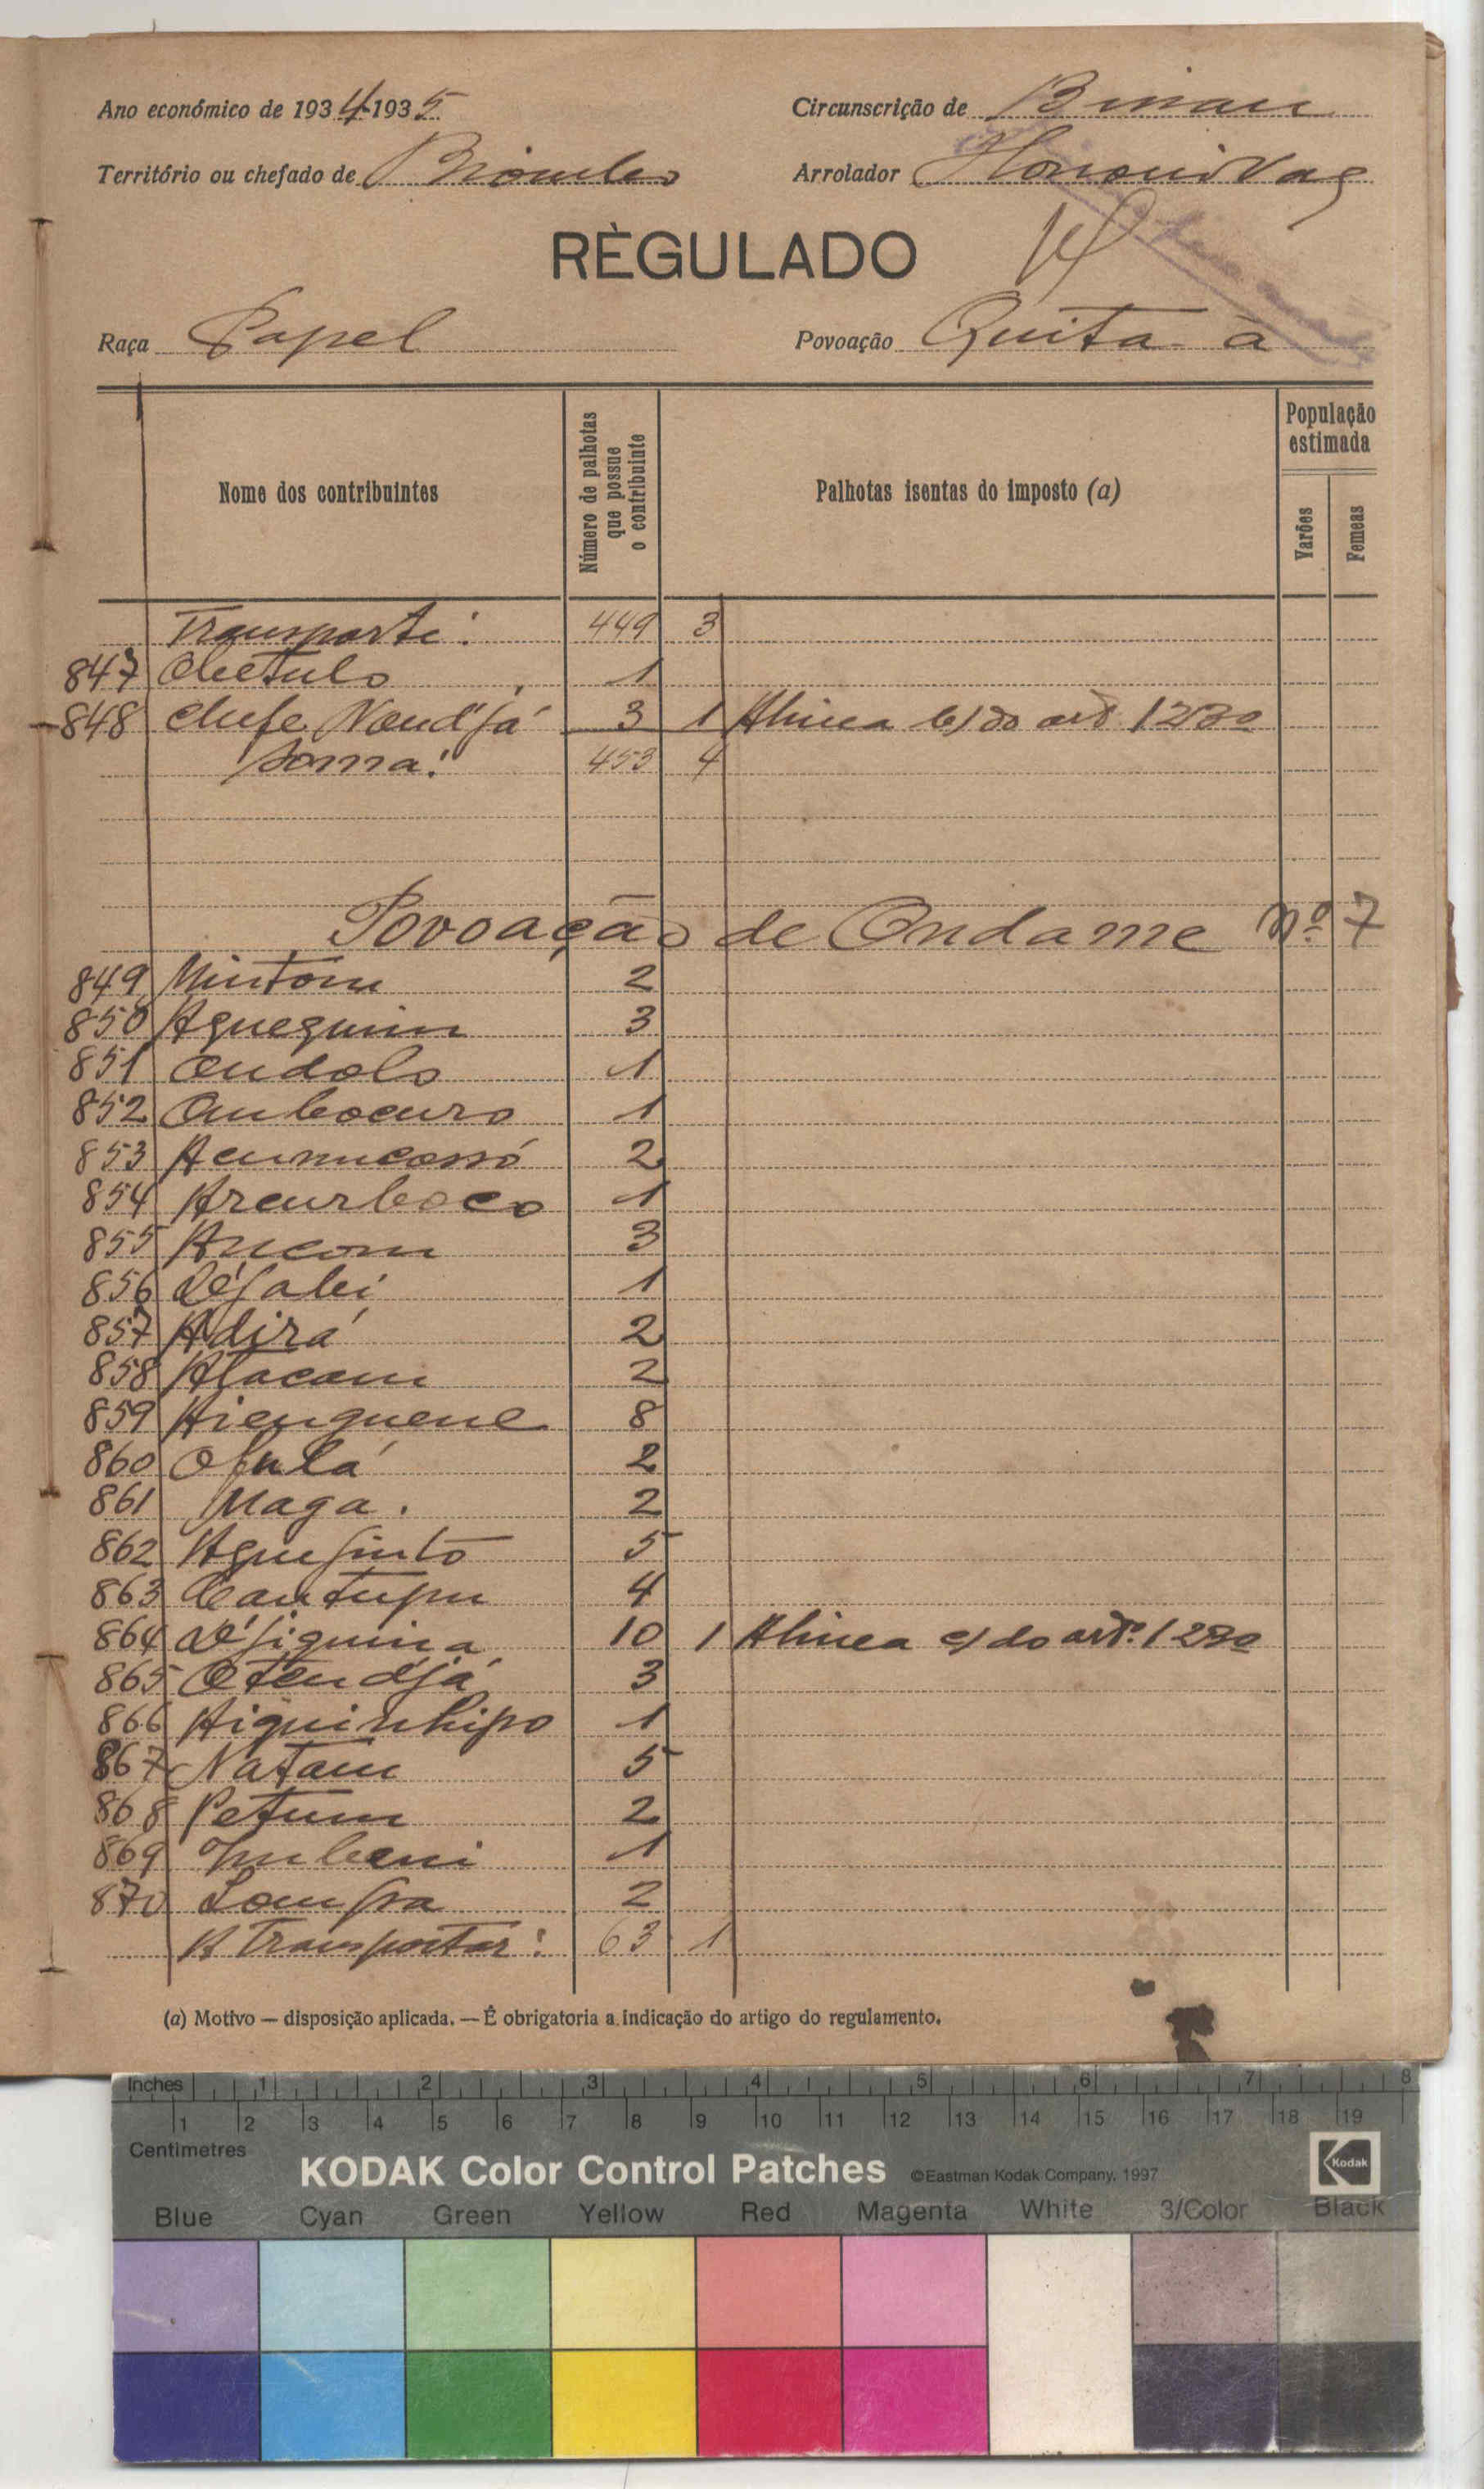 Ano económico de 1934-1935
Circunscrição de Bissau
Território ou chefado de Biombo
Arrolador Honorio Vaz
RÈGULADO
Raça Papel
Povoação Quita - á
Nome dos contribuintes
Número de palhotas que possue o contribuinte
Palhotas isentas do imposto (a)
População estimada
Varões
Femeas
Transporte: 449 3
847 1
848 Chefe Nondjá 3 1 Alinea b) do artº 123º
Soma: 453 4
Povoação de Ondame Nº 7
849 Mintom 2
850 Aguequim 3
851 Ondolo 1
852 Ombocuro 1
853 2
854 Arcurboco 1
855 Ancom 3
856 1
857 Adirá 2
858 2
859 Aienguene 8
860 Ofulá 2
861 Maga. 2
862 5
863 Cantupu 4
864 10 1 Alinea c) do artº. 123º
865 Otendjá 3
866 Aiquinhipo 1
867 Natam 5
868 Petum 2
869 1
870 2
A Transportar: 63 1
(a) Motivo — disposição aplicada. — É obrigatoria a indicação do artigo do regulamento.
Inches 1 2 3 4 5 6 7 8
1 2 3 4 5 6 7 8 9 10 11 12 13 14 15 16 17 18 19
Centimetres
KODAK Color Control Patches ©Eastman Kodak Company, 1997 Kodak
Blue Cyan Green Yellow Red Magenta White 3/Color Black